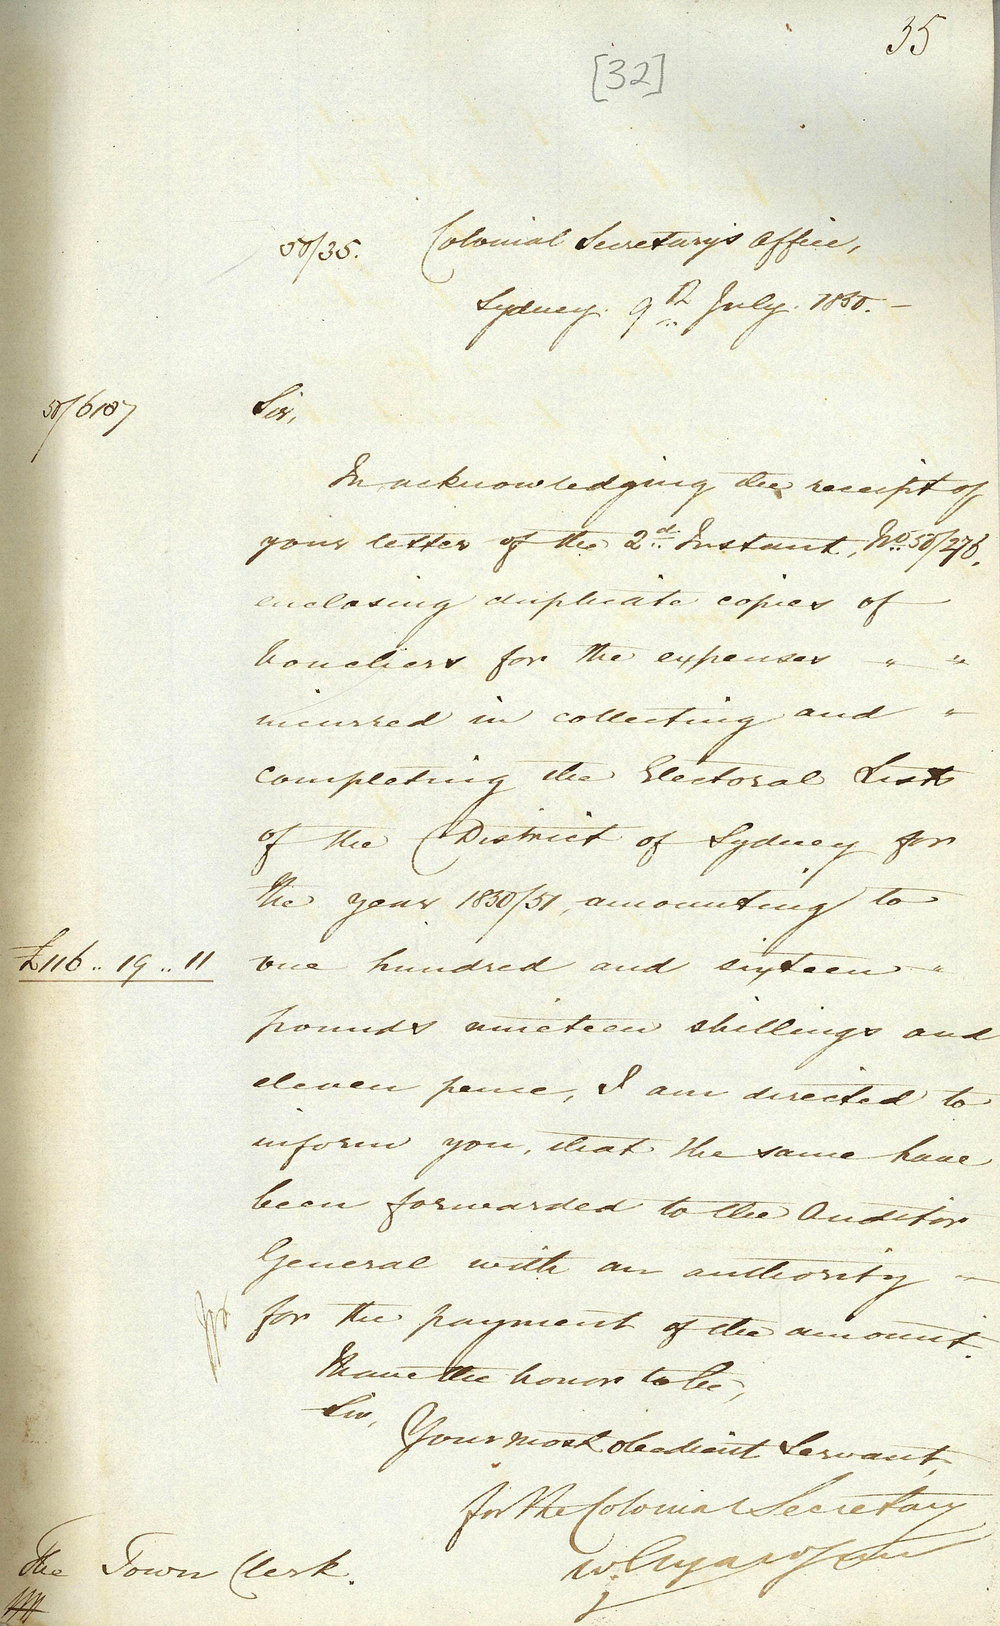 35
[32]
50/35. Colonial Secretary's Office,
Sydney. 9th July. 1850. –
50/6187
Sir,
In acknowledging the receipt of
your letter of the 2d Instant, No 50/276,
enclosing duplicate copies of
Vouchers for the expenses " "
incurred in collecting and "
completing the Electoral Lists
of the District of Sydney for
the year 1850/51, amounting to
£116 .. 19 .. 11 one hundred and sixteen "
pounds nineteen shillings and
eleven pence, I am directed to
inform you, that the same have
been forwarded to the Auditor
General with an authority –
for the payment of the amount.
I have the honor to be,
Sir,
Your most obedient Servant,
for the Colonial Secretary
W.
The Town Clerk.